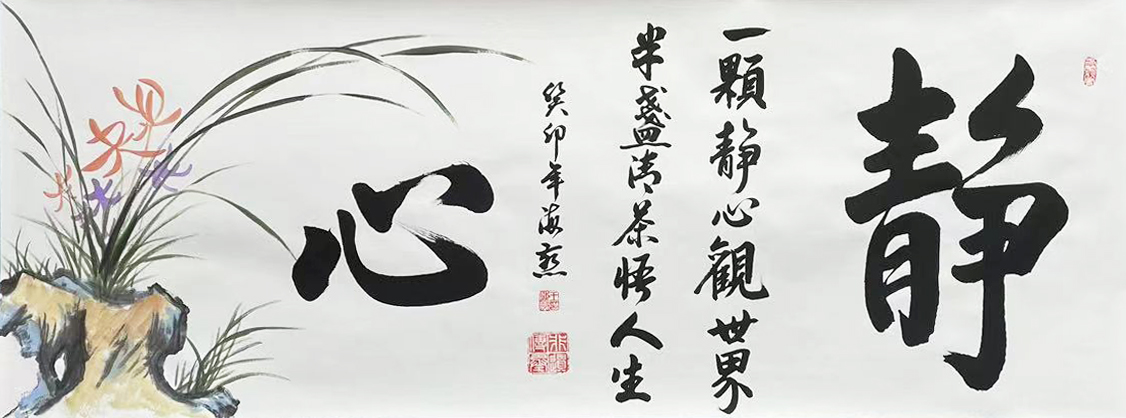 静
一顆静心觀世界
半盞清茶悟人生
心
癸卯年海燕